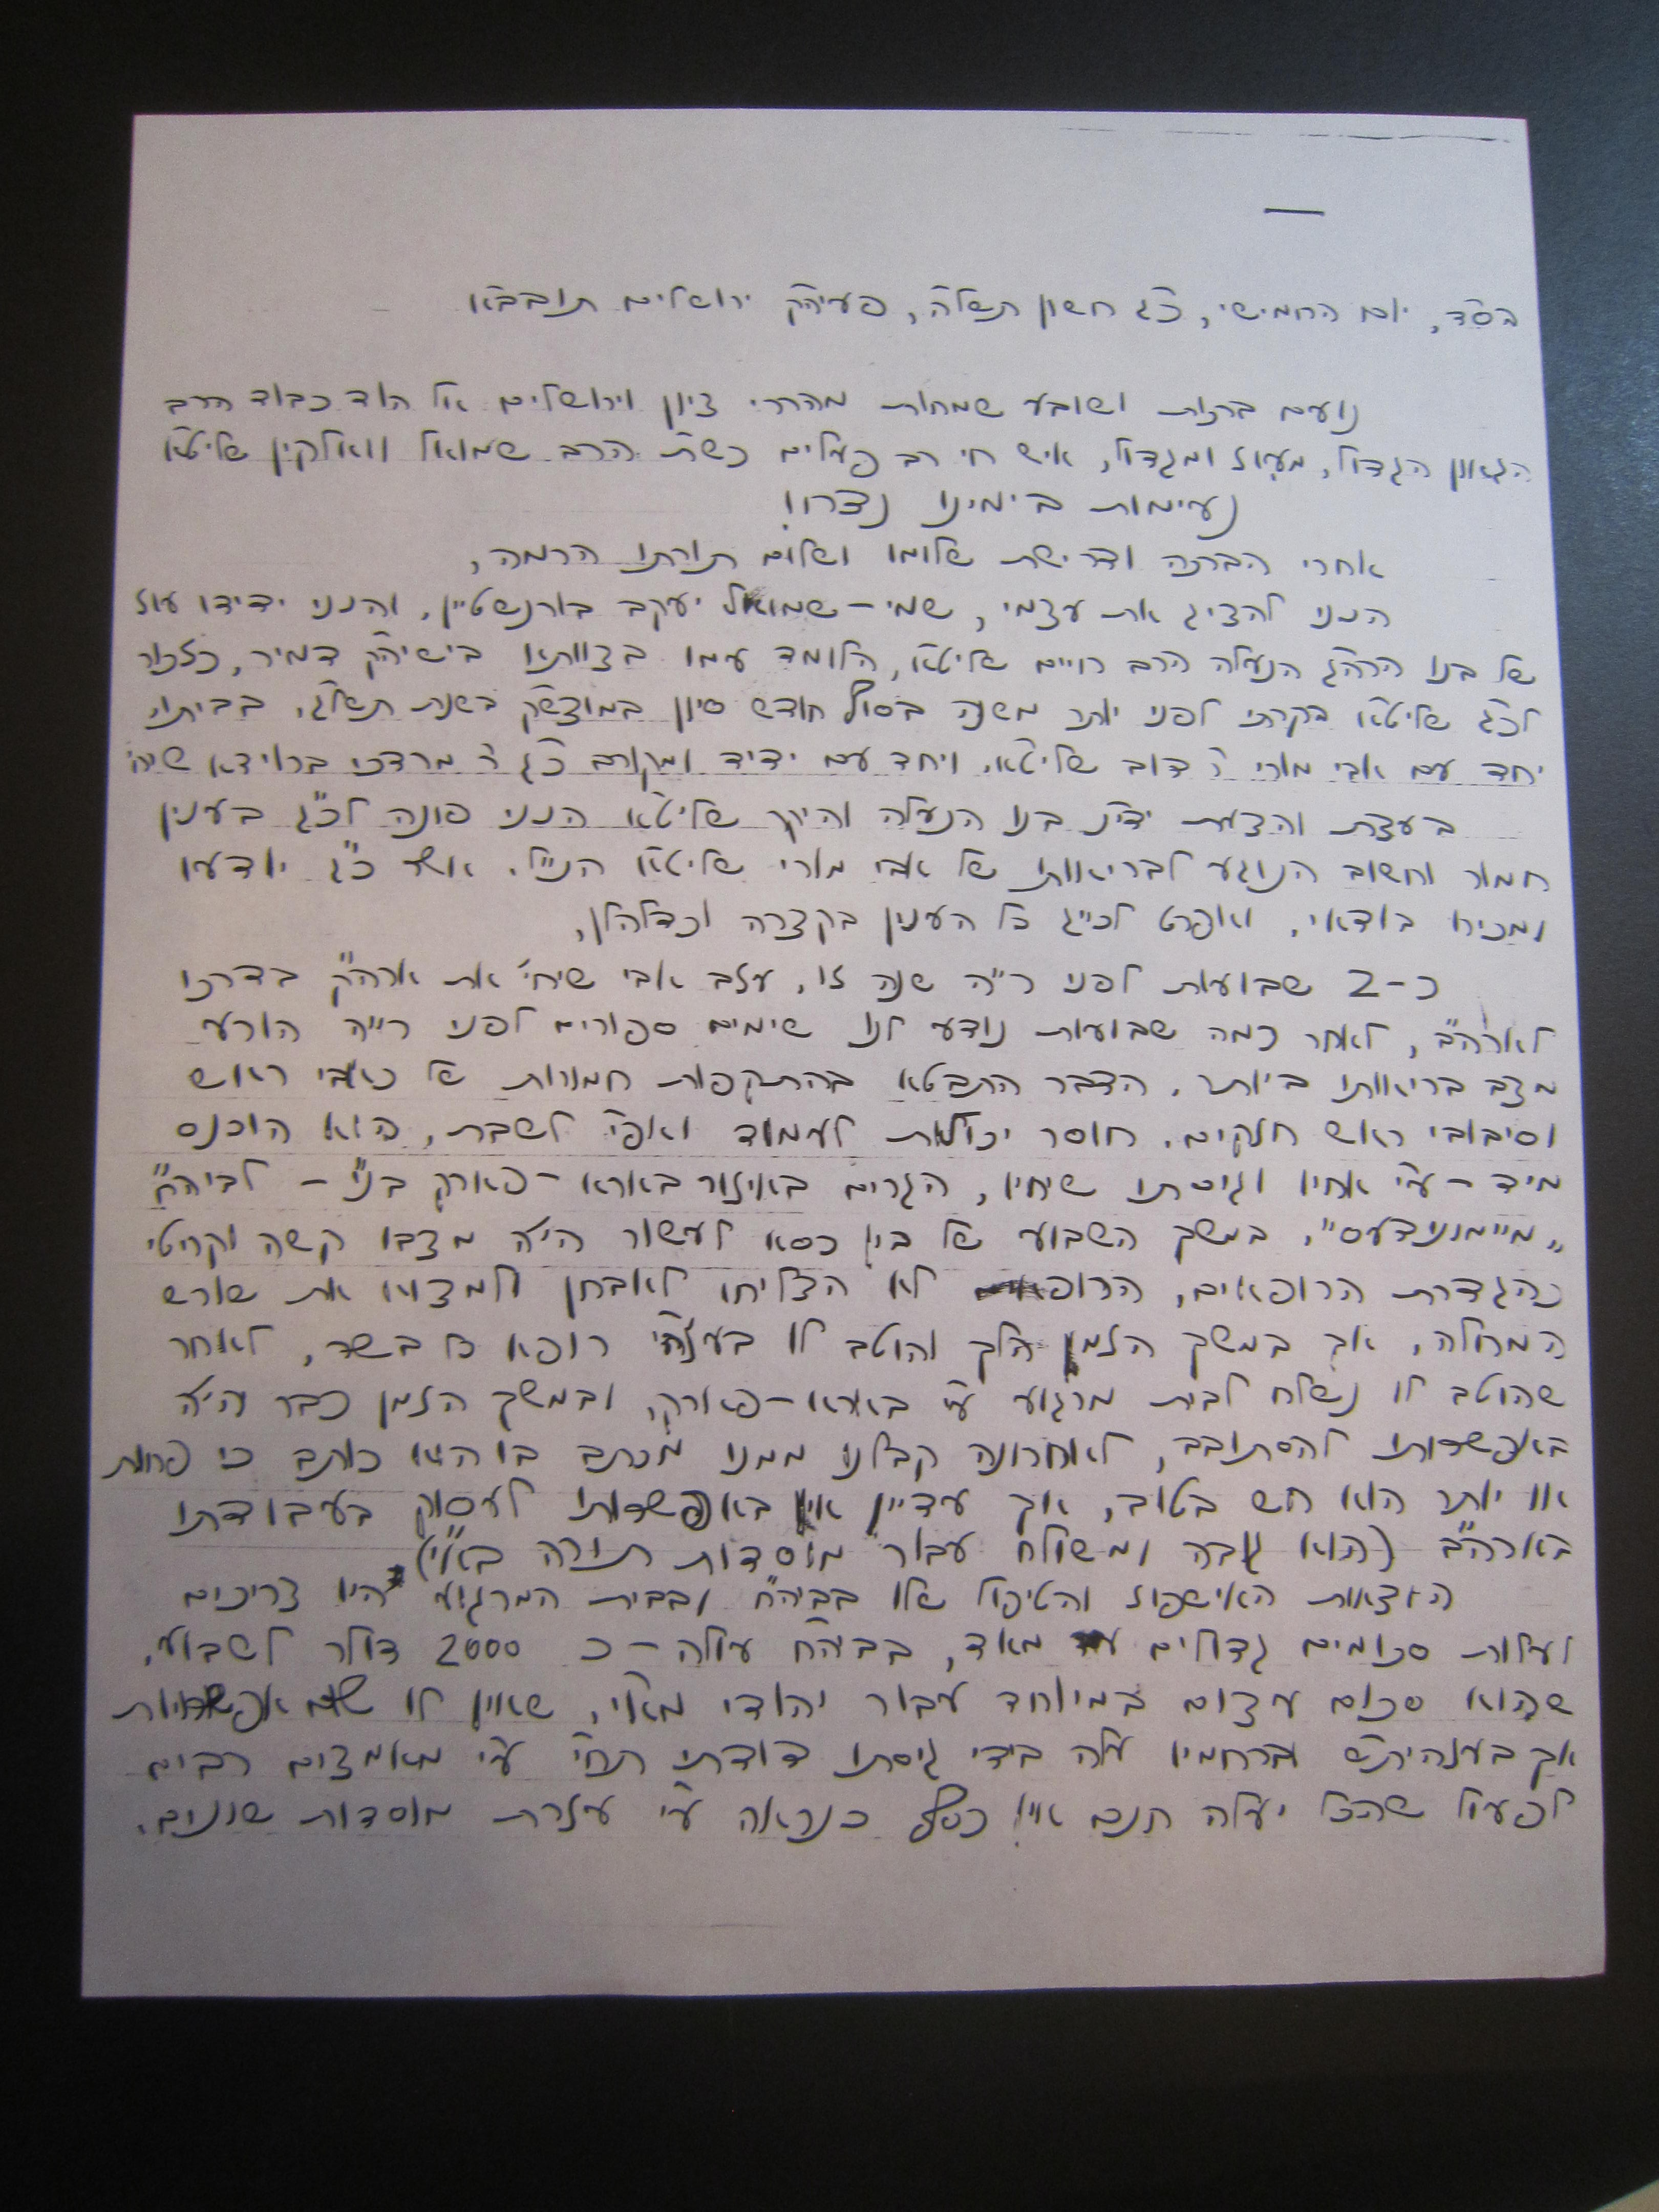 בס״ד, יום החמישי, כ״ג חשון תשל״ה, פעיה״ק ירושלים תובב״א
נועם ברכות ושובע שמחות מהררי ציון וירושלים אל הוד כבוד הרב
הגאון הגדול, מעוז ומגדול, איש חי רב פעלים כש״ת הרב שמואל וואלקין שליט״א
נעימות בימינו נצח!
אחרי הברכה ודרישת שלומו ושלום תורתו הרמה,
הנני להציג את עצמי, שמי - שמואל יעקב בורנשטיין, והנני ידידו עוז
של בנו הרה״ג הנעלה הרב חיים שליט״א, הלומד עמנו בצוותא בישיה״ק דמיר, כזכור
לכ״ג שליט״א בקרתי לפני יותר משנה בסוף חודש סיון במוצש״ק בשנת תשל״ג, בביתו,
יחד עם אבי מורי ר׳ דוב שליט״א, ויחד עם ידיד ומקורב כ״ג ר׳ מרדכי ברוידא שיחי׳
בעצת והצעת ידי״נ בנו הנעלה והיקר שליט״א הנני פונה לכ״ג בענין
חמור וחשוב הנוגע לבריאותו של אבי מורי שליט״א הנ״ל, אשר כ״ג יודעו
ומכירו בודאי, ואפרט לכ״ג כל הענין בקצרה וכדלהלן,
כ-2 שבועות לפני ר״ה שנה זו, עזב אבי שיחי׳ את ארה״ק בדרכו
לארה״ב, לאחר כמה שבועות נודע לנו שימים ספורים לפני ר״ה הורע
מצב בריאותו ביותר, הדבר התבטא בהתקפות חמורות של כאבי ראש
וסיבובי ראש חזקים, חוסר יכולת לעמוד ואפי׳ לשבת, הוא הוכנס
מיד - ע״י אחיו וגיסתו שיחיו, הגרים באיזור בארא-פארק בנ״י - לביה״ח
״מיימונידעס״, במשך השבוע של בין כסא לעשור הי׳ מצבו קשה וקריטי
כהגדרת הרופאים, הרופאים לא הצליחו לאבחן ולמצוא את שורש
המחלה, אך במשך הזמן הלך והוטב לו בעזהי״ רופא כל בשר, לאחר
שהוטב לו נשלח לבית מרגוע ע״י בארא-פארק, ובמשך הזמן כבר הי׳
באפשרותו להסתובב, לאחרונה קבלנו ממנו מכתב בו הוא כותב כי פחות
או יותר הוא חש בטוב, אך עדיין אין באפשרותו לעסוק בעבודתו
בארה״ב (הוא גובה ומשולח עבור מוסדות תורה בא״י)
הוצאות האישפוז והטיפול שלו בביה״ח ובבית המרגוע היו צריכים
לעלות סכומים גדולים מאד, בביה״ח עולה - כ 2000 דולר לשבוע,
שהוא סכום עצום במיוחד עבור יהודי מא״י, שאין לו שום אפשרויות
אך בעזהית״ש וברחמיו עלה בידי גיסתו דודתי תחי׳ ע״י מאמצים רבים
לפעול שהכל יעלה חנם אין כסף כנראה ע״י עזרת מוסדות שונים.